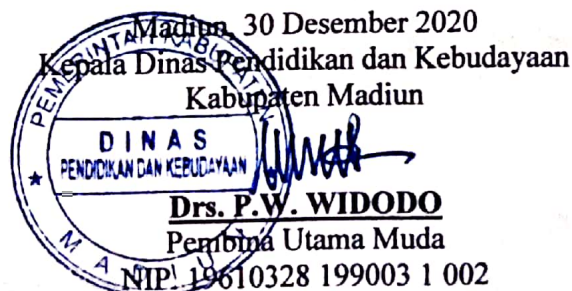 Madiun, 30 Desember 2020
Kepala Dinas Pendidikan dan Kebudayaan
Kabupaten Madiun
PEMERINTAH KABUPATEN
DINAS
PENDIDIKAN DAN KEBUDAYAAN
MADIUN
Drs. P.W. WIDODO
Pembina Utama Muda
NIP. 19610328 199003 1 002